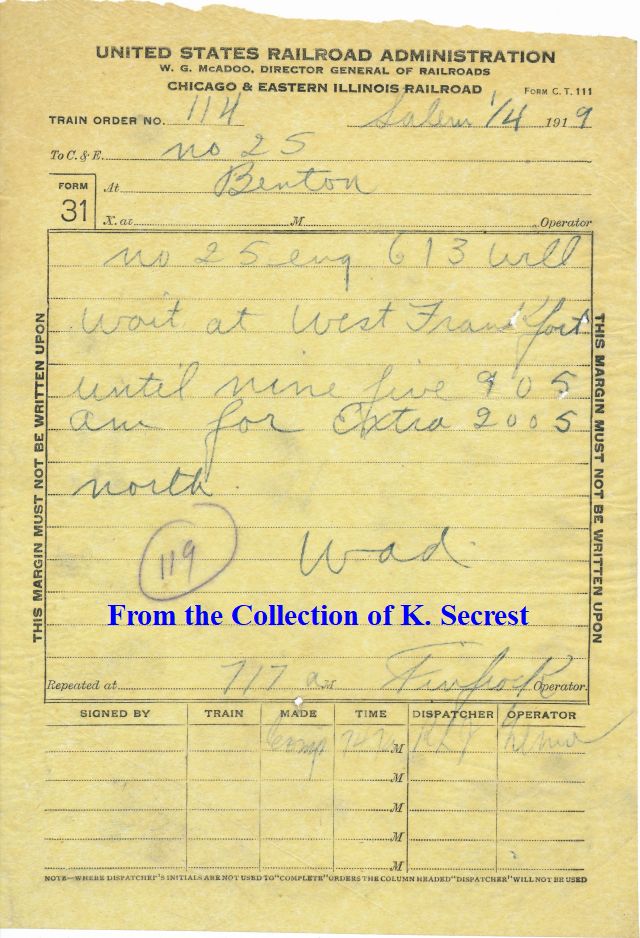 UNITED STATES RAILROAD ADMINISTRATION
W. G. McADOO, DIRECTOR GENERAL OF RAILROADS
CHICAGO & EASTERN ILLINOIS RAILROAD FORM C. T. 111
TRAIN ORDER NO. 114 Salem 1/4 1919
To C. & E. no 25
FORM 31
At Benton
X. at M Operator
no 25 eng 613 will
wait at West Frankfort
until nine five 905
am for Extra 2005
north.
119 Wad.
From the Collection of K. Secrest
Repeated at 717 a M Operator.
SIGNED BY TRAIN MADE TIME DISPATCHER OPERATOR
Comp M
M
M
M
M
NOTE—WHERE DISPATCHER'S INITIALS ARE NOT USED TO "COMPLETE" ORDERS THE COLUMN HEADED "DISPATCHER" WILL NOT BE USED
THIS MARGIN MUST NOT BE WRITTEN UPON
THIS MARGIN MUST NOT BE WRITTEN UPON